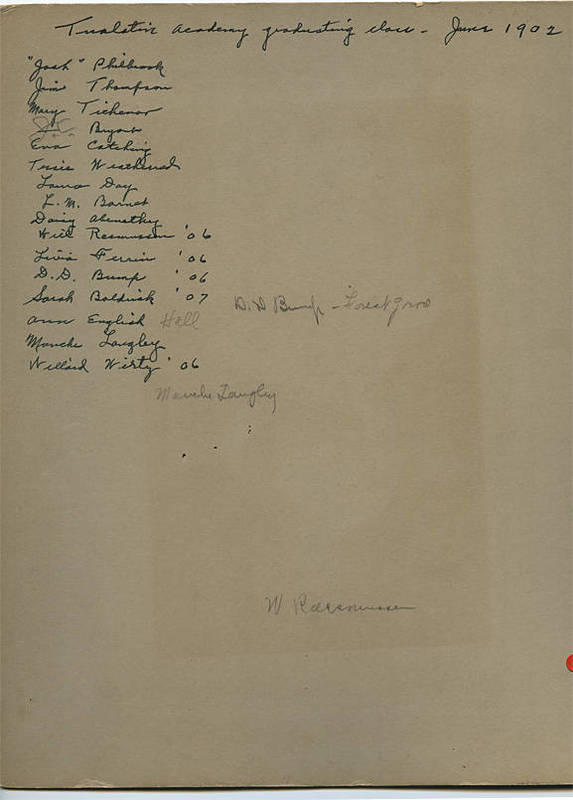 Tualatin Academy graduating class - June 1902
"Josh" Philbrook
Jim Thompson
Mary Tichenor
J.C. Bryant
Eva Catching
Tessie
Laura Day
L.M. Barnet
Daisy Abernethy
Will Rasmussen '06
Livia Ferrin '06
D.D. Bump '06
Sarah Boldrick '07
D.D Bump - Forest Grove
Ann English Hall
Manche Langley
Willard Wirtz '06
Manche Langley
W Rasmussen